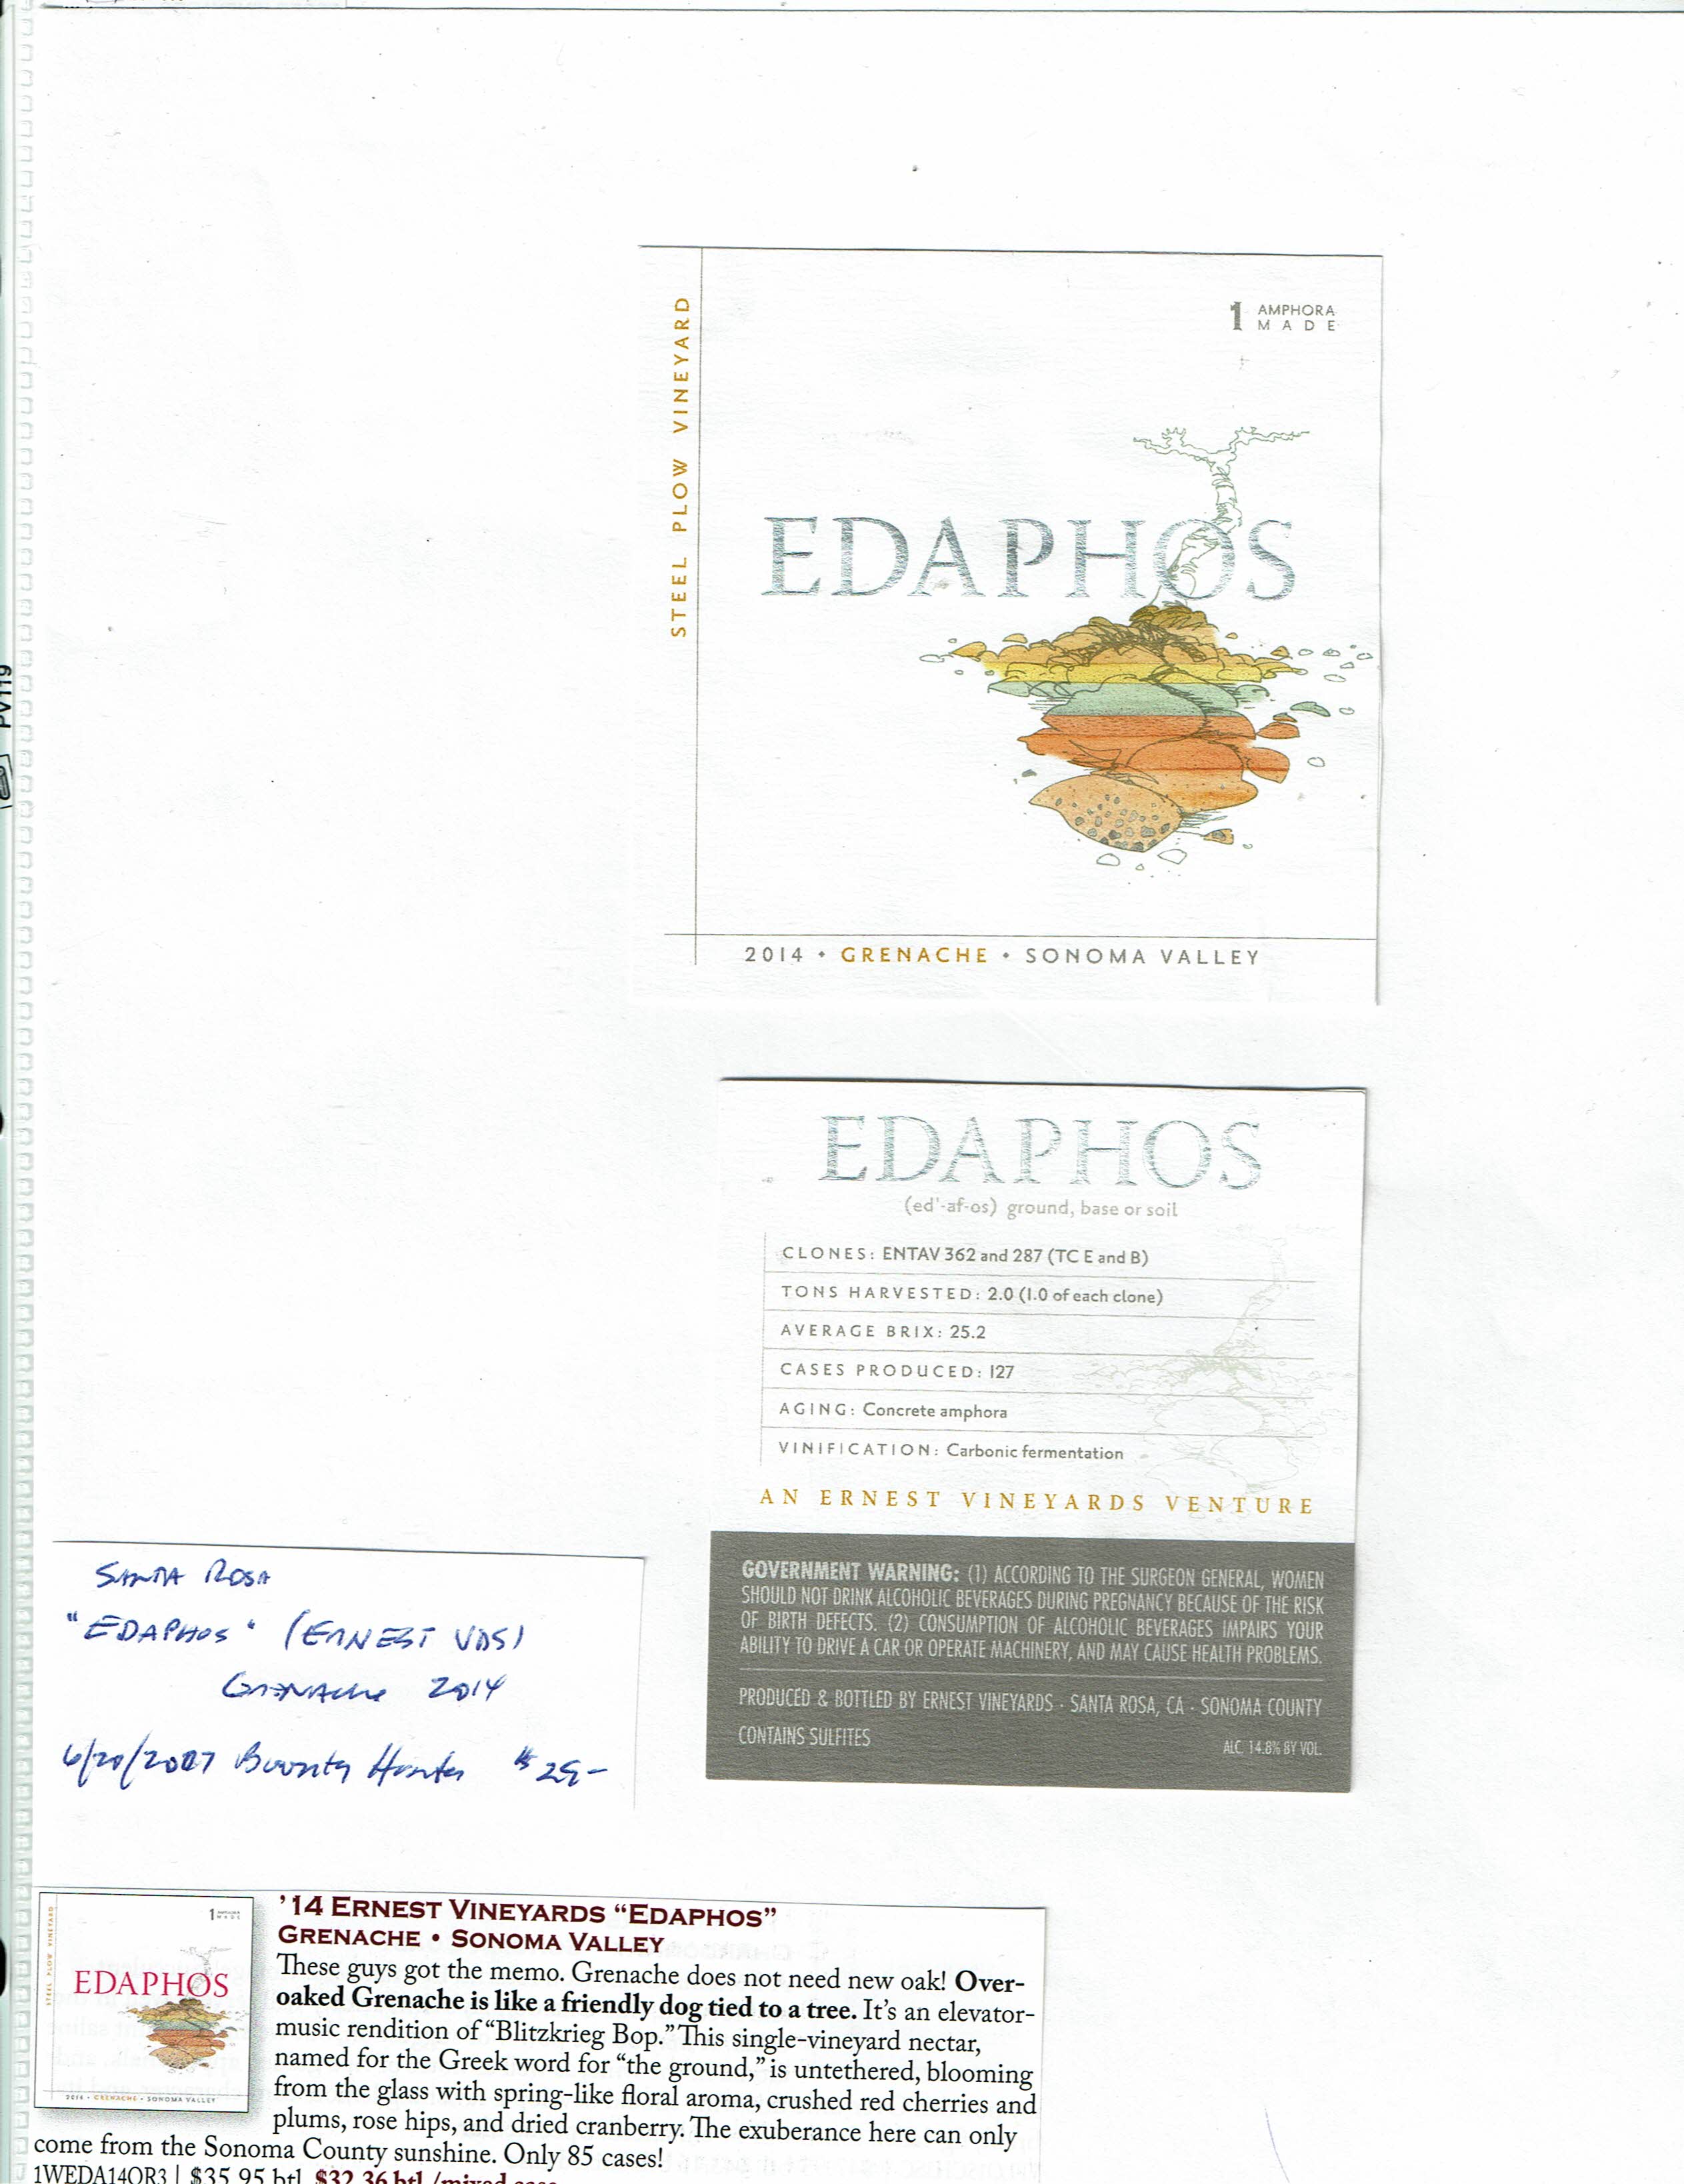 PV119
STEEL PLOW VINEYARD
1 AMPHORA
MADE
EDAPHOS
2014 • GRENACHE • SONOMA VALLEY
EDAPHOS
(ed'-af-os) ground, base or soil
CLONES: ENTAV 362 and 287 (TC E and B)
TONS HARVESTED: 2.0 (1.0 of each clone)
AVERAGE BRIX: 25.2
CASES PRODUCED: 127
AGING: Concrete amphora
VINIFICATION: Carbonic fermentation
AN ERNEST VINEYARDS VENTURE
GOVERNMENT WARNING: (1) ACCORDING TO THE SURGEON GENERAL, WOMEN
SHOULD NOT DRINK ALCOHOLIC BEVERAGES DURING PREGNANCY BECAUSE OF THE RISK
OF BIRTH DEFECTS. (2) CONSUMPTION OF ALCOHOLIC BEVERAGES IMPAIRS YOUR
ABILITY TO DRIVE A CAR OR OPERATE MACHINERY, AND MAY CAUSE HEALTH PROBLEMS.
PRODUCED & BOTTLED BY ERNEST VINEYARDS · SANTA ROSA, CA · SONOMA COUNTY
CONTAINS SULFITES
ALC. 14.8% BY VOL.
SANTA ROSA
"EDAPHOS" (ERNEST VDS)
GRENACHE 2014
6/20/2017 Bounty Hunter $29-
1 AMPHORA
MADE
STEEL PLOW VINEYARD
EDAPHOS
2014 • GRENACHE • SONOMA VALLEY
'14 ERNEST VINEYARDS “EDAPHOS”
GRENACHE • SONOMA VALLEY
These guys got the memo. Grenache does not need new oak! Over-
oaked Grenache is like a friendly dog tied to a tree. It’s an elevator-
music rendition of “Blitzkrieg Bop.” This single-vineyard nectar,
named for the Greek word for “the ground,” is untethered, blooming
from the glass with spring-like floral aroma, crushed red cherries and
plums, rose hips, and dried cranberry. The exuberance here can only
come from the Sonoma County sunshine. Only 85 cases!
1WEDA14QR3 | $35.95 btl. $32.36 btl./mixed case